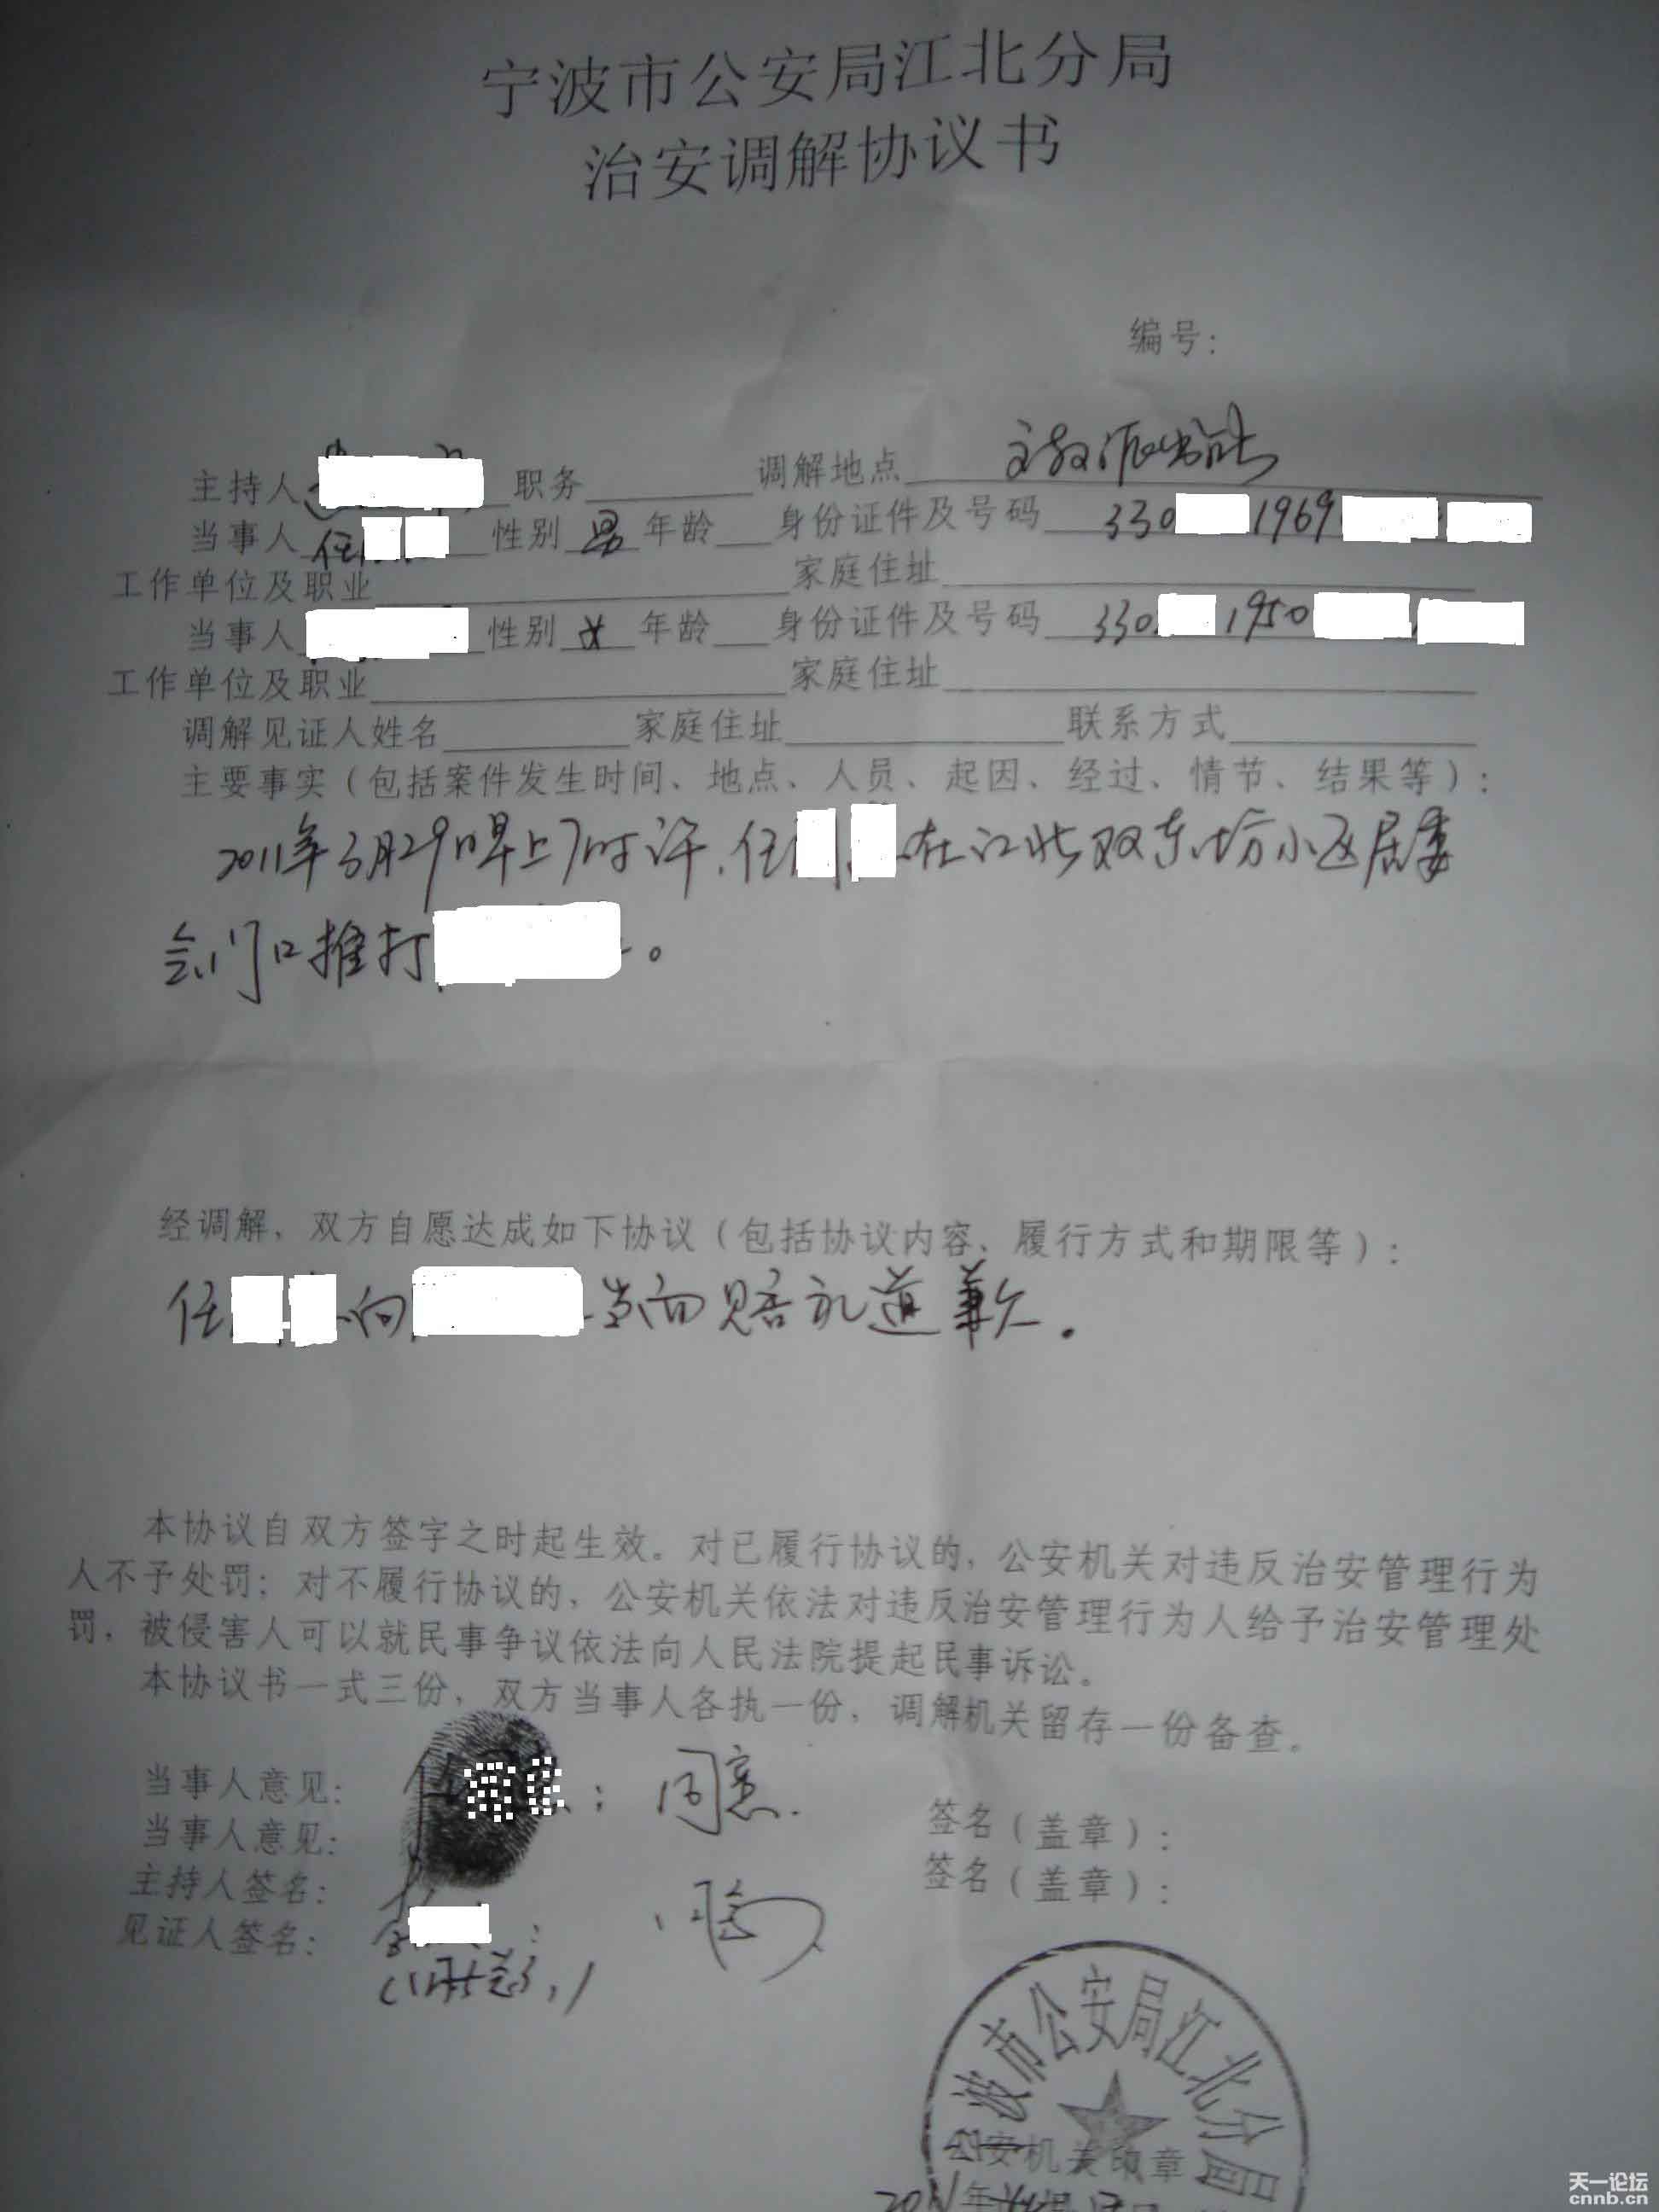 宁波市公安局江北分局
治安调解协议书
编号：
主持人 职务 调解地点 文教派出所
当事人 任 性别 男 年龄 身份证件及号码 330 1969
工作单位及职业 家庭住址
当事人 性别 女 年龄 身份证件及号码 330 1950
工作单位及职业 家庭住址
调解见证人姓名 家庭住址 联系方式
主要事实（包括案件发生时间、地点、人员、起因、经过、情节、结果等）：
2011年3月29日早上7时许，任 在江北双东坊小区居委
会门口推打 。
经调解，双方自愿达成如下协议（包括协议内容、履行方式和期限等）：
任 向 当面赔礼道歉。
本协议自双方签字之时起生效。对已履行协议的，公安机关对违反治安管理行为
人不予处罚；对不履行协议的，公安机关依法对违反治安管理行为人给予治安管理处
罚，被侵害人可以就民事争议依法向人民法院提起民事诉讼。
本协议书一式三份，双方当事人各执一份，调解机关留存一份备查。
当事人意见： 同意. 签名（盖章）：
当事人意见： 签名（盖章）：
主持人签名：
见证人签名：
波市公安局江北分局
公安机关印章
年
天一论坛
cnnb.cn